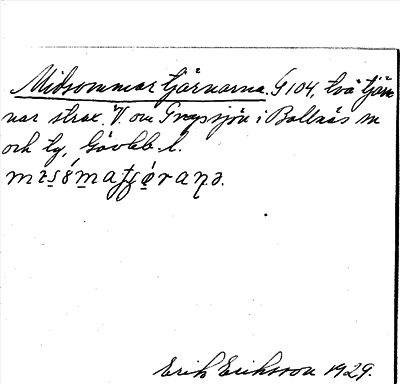 Midsommartjärnarna. G 104, två tjär-
nar strax V. om Grycksjön i Bollnäs sn
och tg, Gävleb. l.
misómatjǿraṇə.
Erik Eriksson 1929.